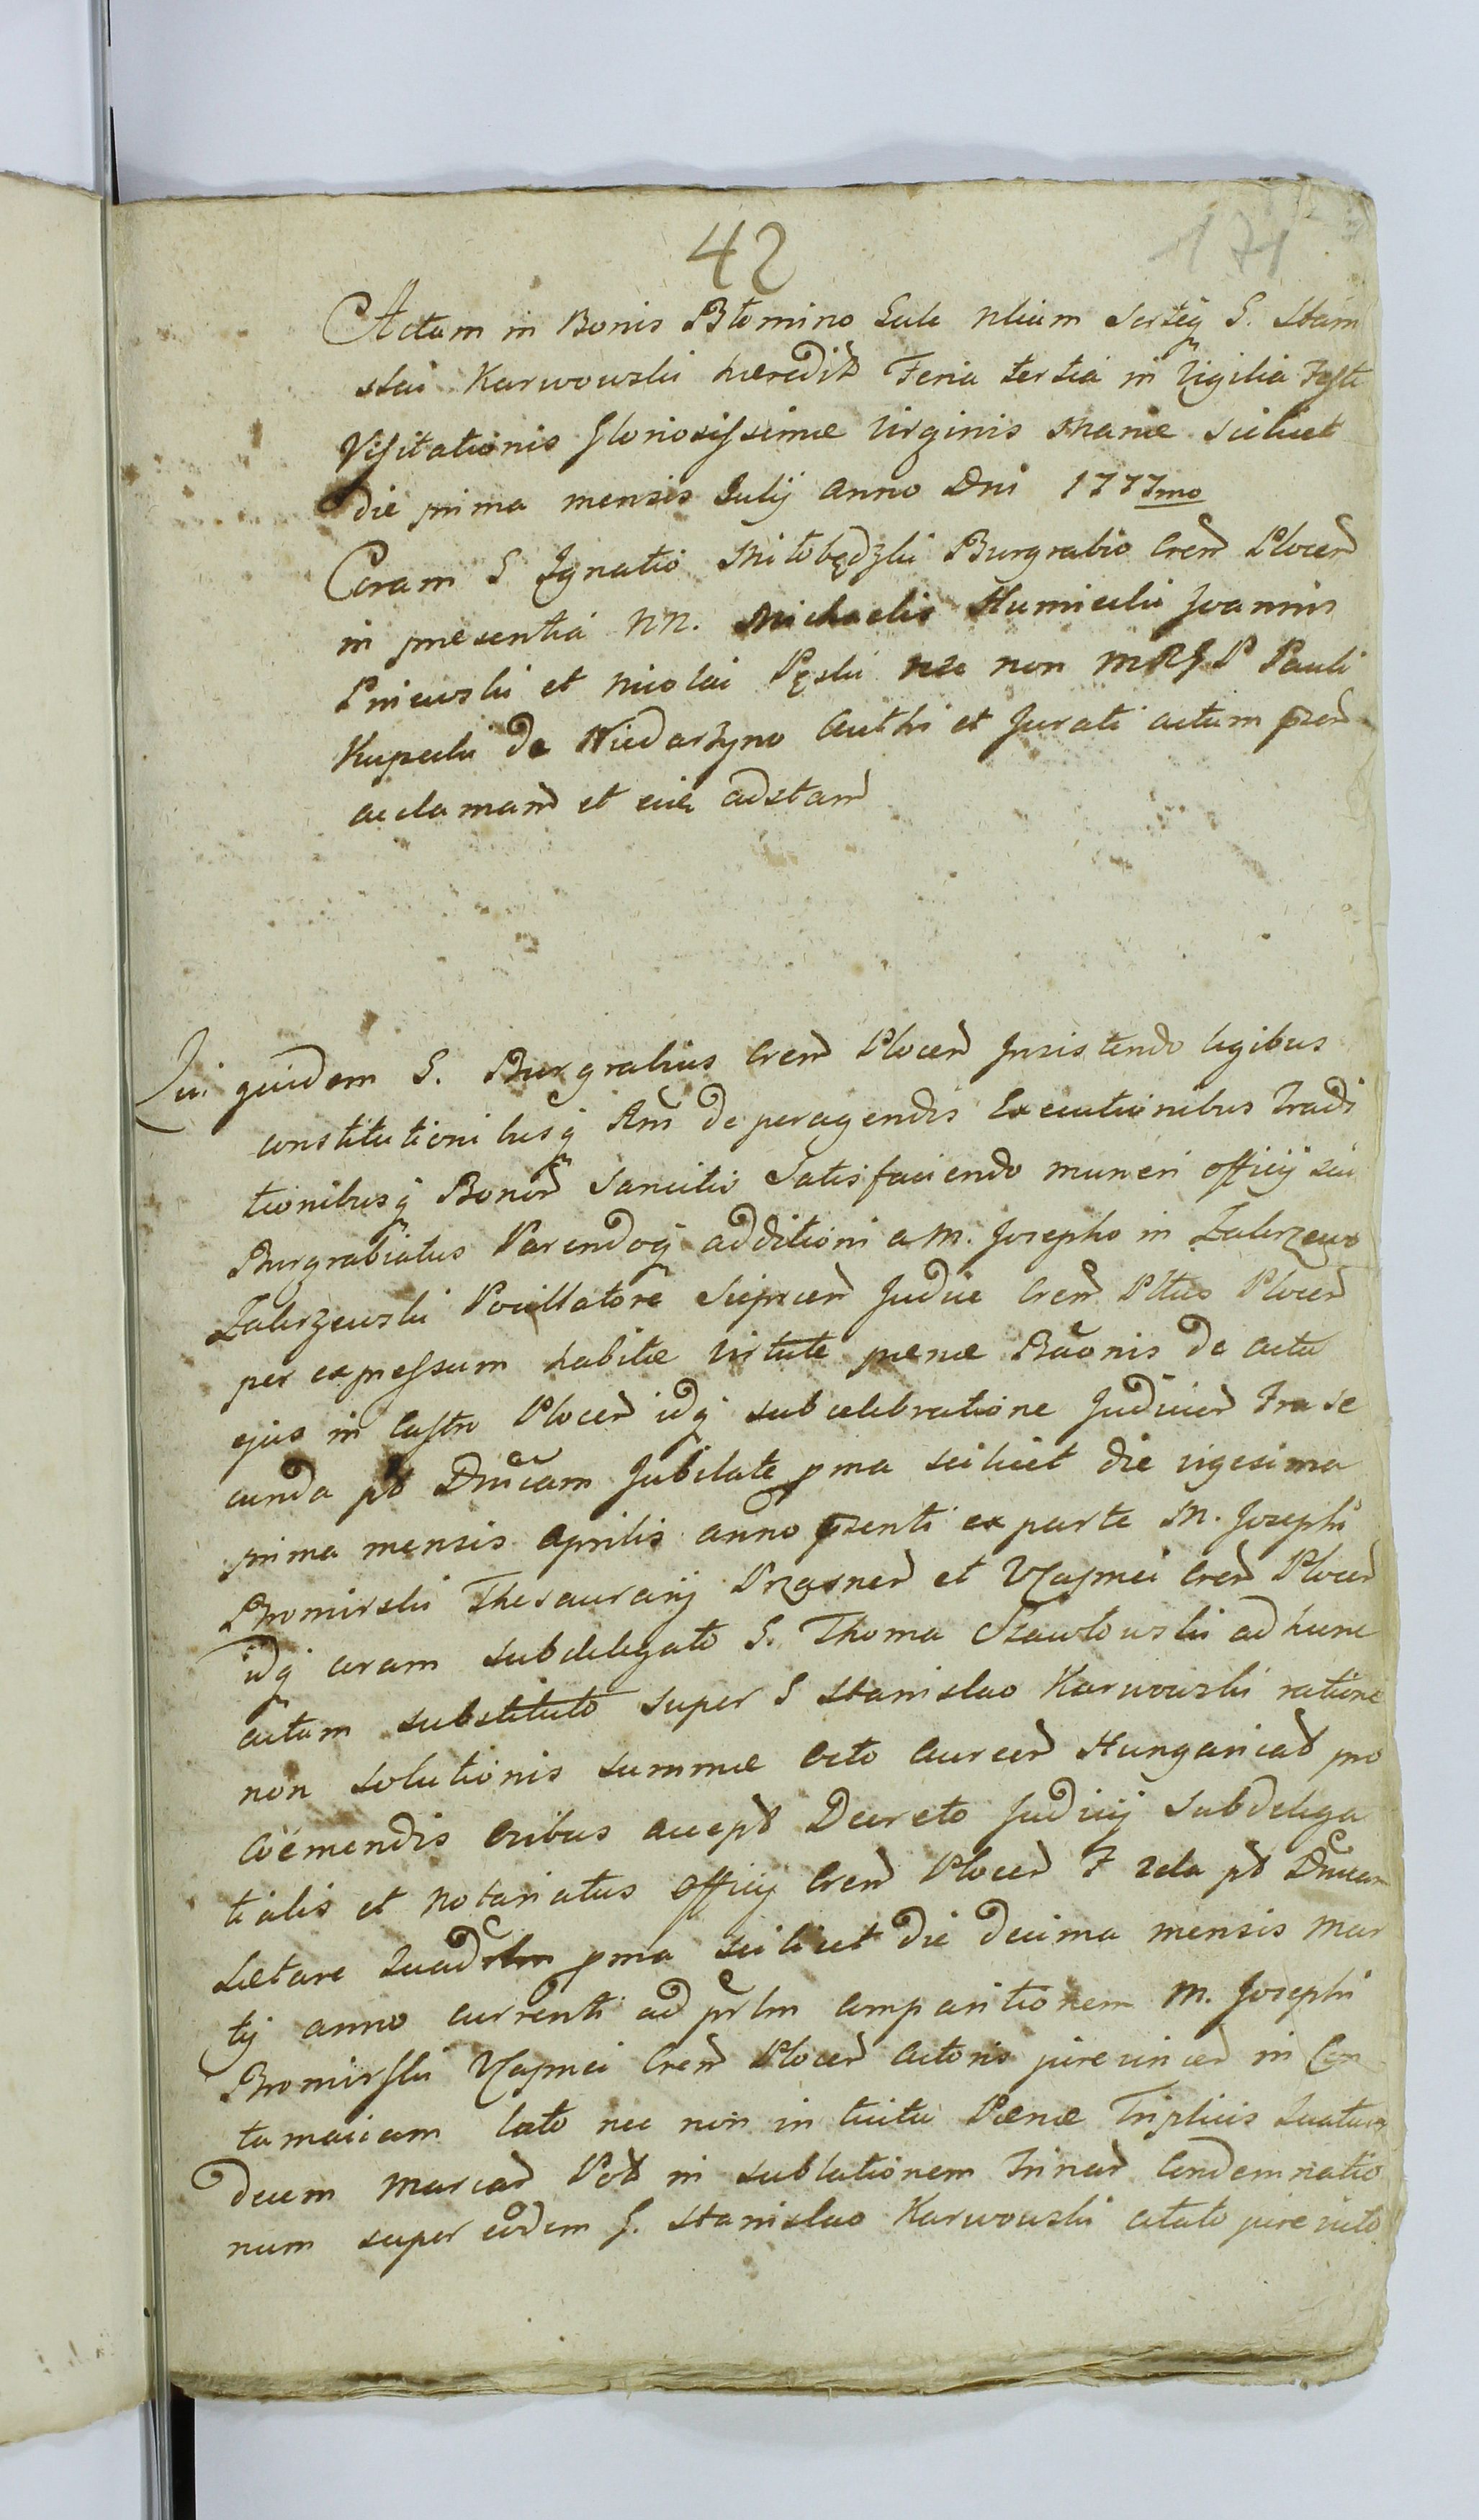 42
171
Actum in Bonis Błomino Gule ntium Sortisq G. Stani
slai Karwowski haeredit Feria tertia in Vigilia Festi
Visitationis Gloriosissimae Virginis Mariae scilicet
die prima mensis Julij anno Dni 1777mo
Coram G Ignatio Miłobędzki Burgrabio Cren Plocen
in praesentia NN. Michaelis Humiecki Joannis
Pniewski et Nicolai Pęski nec non MRGP Pauli
Kupecki de Niedarzyno authi et Jurati actum pren
acclamand et eiq adstand
Qui quidem G. Burgrabius Cren Plocen Insistendo legibus
constitutionibusq Rni de peragendis Executionibus Tradi
tionibusq Bonor Sancitis Satisfaciendo muneri officij sui
Burgrabiatus Parendoq additioni a M. Josepho in Zakrzewo
Zakrzewski Pocillatore Sieprcen Judice Cren Pltus Plocen
per expressum habitae virtute paenae Bãonis de actu
ejus in Castro Plocen idq sub celebratione Judicior Fra se
cunda pt Dnicam Jubilate pma scilicet die vigesima
prima mensis Aprilis anno psenti ex parte M. Josephi
Bromirski Thesaurarij Przasnen et Vcapnei Cren Plocen
idq coram subdelegato G. Thoma Szawłowski ad hunc
actum substituto super G Stanislao Karwowski ratione
non solutionis summae octo aureor Hungarical pro
coëmendis ovibus accept Decreto Judicij Subdelega
tialis et Notariatus Officij Cren Plocen F 2da pt Dnicam
Laetare Quadrlm pma scilicet die decima mensis Mar
tij anno currenti ad prlm comparitionem M. Josephi
Bromirski Vcapnei Cren Plocen Actoris jurevincen in Con
tumaciam lato nec non in tuitu Paenae Triplicis Quatuor
decem Marcar Pol in sublationem Trinar Condemnatio
num super eodem G. Stanislao Karwowski citato jure victo